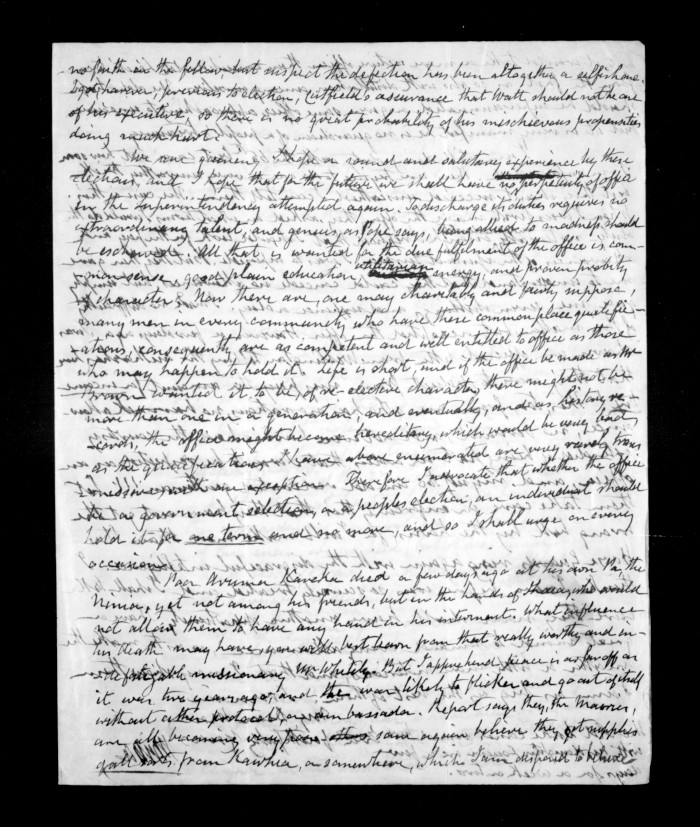 no faith in the fellow, but suspect the defection has been altogether a selfish one.
I got however, previous to election, Cutfield's assurance that Watt should not be one
of his executive, so there is no great probability of his mischievous propensities
doing much hurt.
We are gaining, I hope a sound and salutary experience by these
elections, and I hope that for the future we shall have no perpetuity of office
in the Superintendency attempted again. To discharge its duties requires no
extraordinary talent, and genius, as Pope says, being allied to madness should
be eschewed. All that is wanted for the due fulfilment of the office is com-
mon sense, a good plain education, utilitarian energy, and proven probity
of character. Now there are, one may charitably and fairly suppose,
many men in every community who have these common place qualific-
ations, consequently are as competent and well entitled to office as those
who may happen to hold it. Life is short, and if the office be made as Mr
Brown wanted it to be, of re-elective character, there might not be
more than one in a generation, and eventually, and as history re-
cords, the office might become hereditary, which would be very bad
as the qualifications I have above enumerated are very rarely
Therefore I advocate that whether the office
be a government selection, or a peoples election, an individual should
hold it for one term and no more, and so I shall urge on every
occasion.
Poor Arama Karaka died a few days ago at his own Pa, the
Numa, yet not among his friends, but in the hands of those who would
not allow them to have any hand in his interment. What influence
his death may have, you will best learn from that really worthy and in-
defatigable missionary Mr Whitely. But I apprehend peace is as far off as
it was two years ago, and the war likely to flicker and go out of itself
without either protocol, or ambassador. Report says they, the Maories,
are all becoming very poor some again believe they get supplies
of all sorts from Kawhia, or somewhere, which I am disposed to